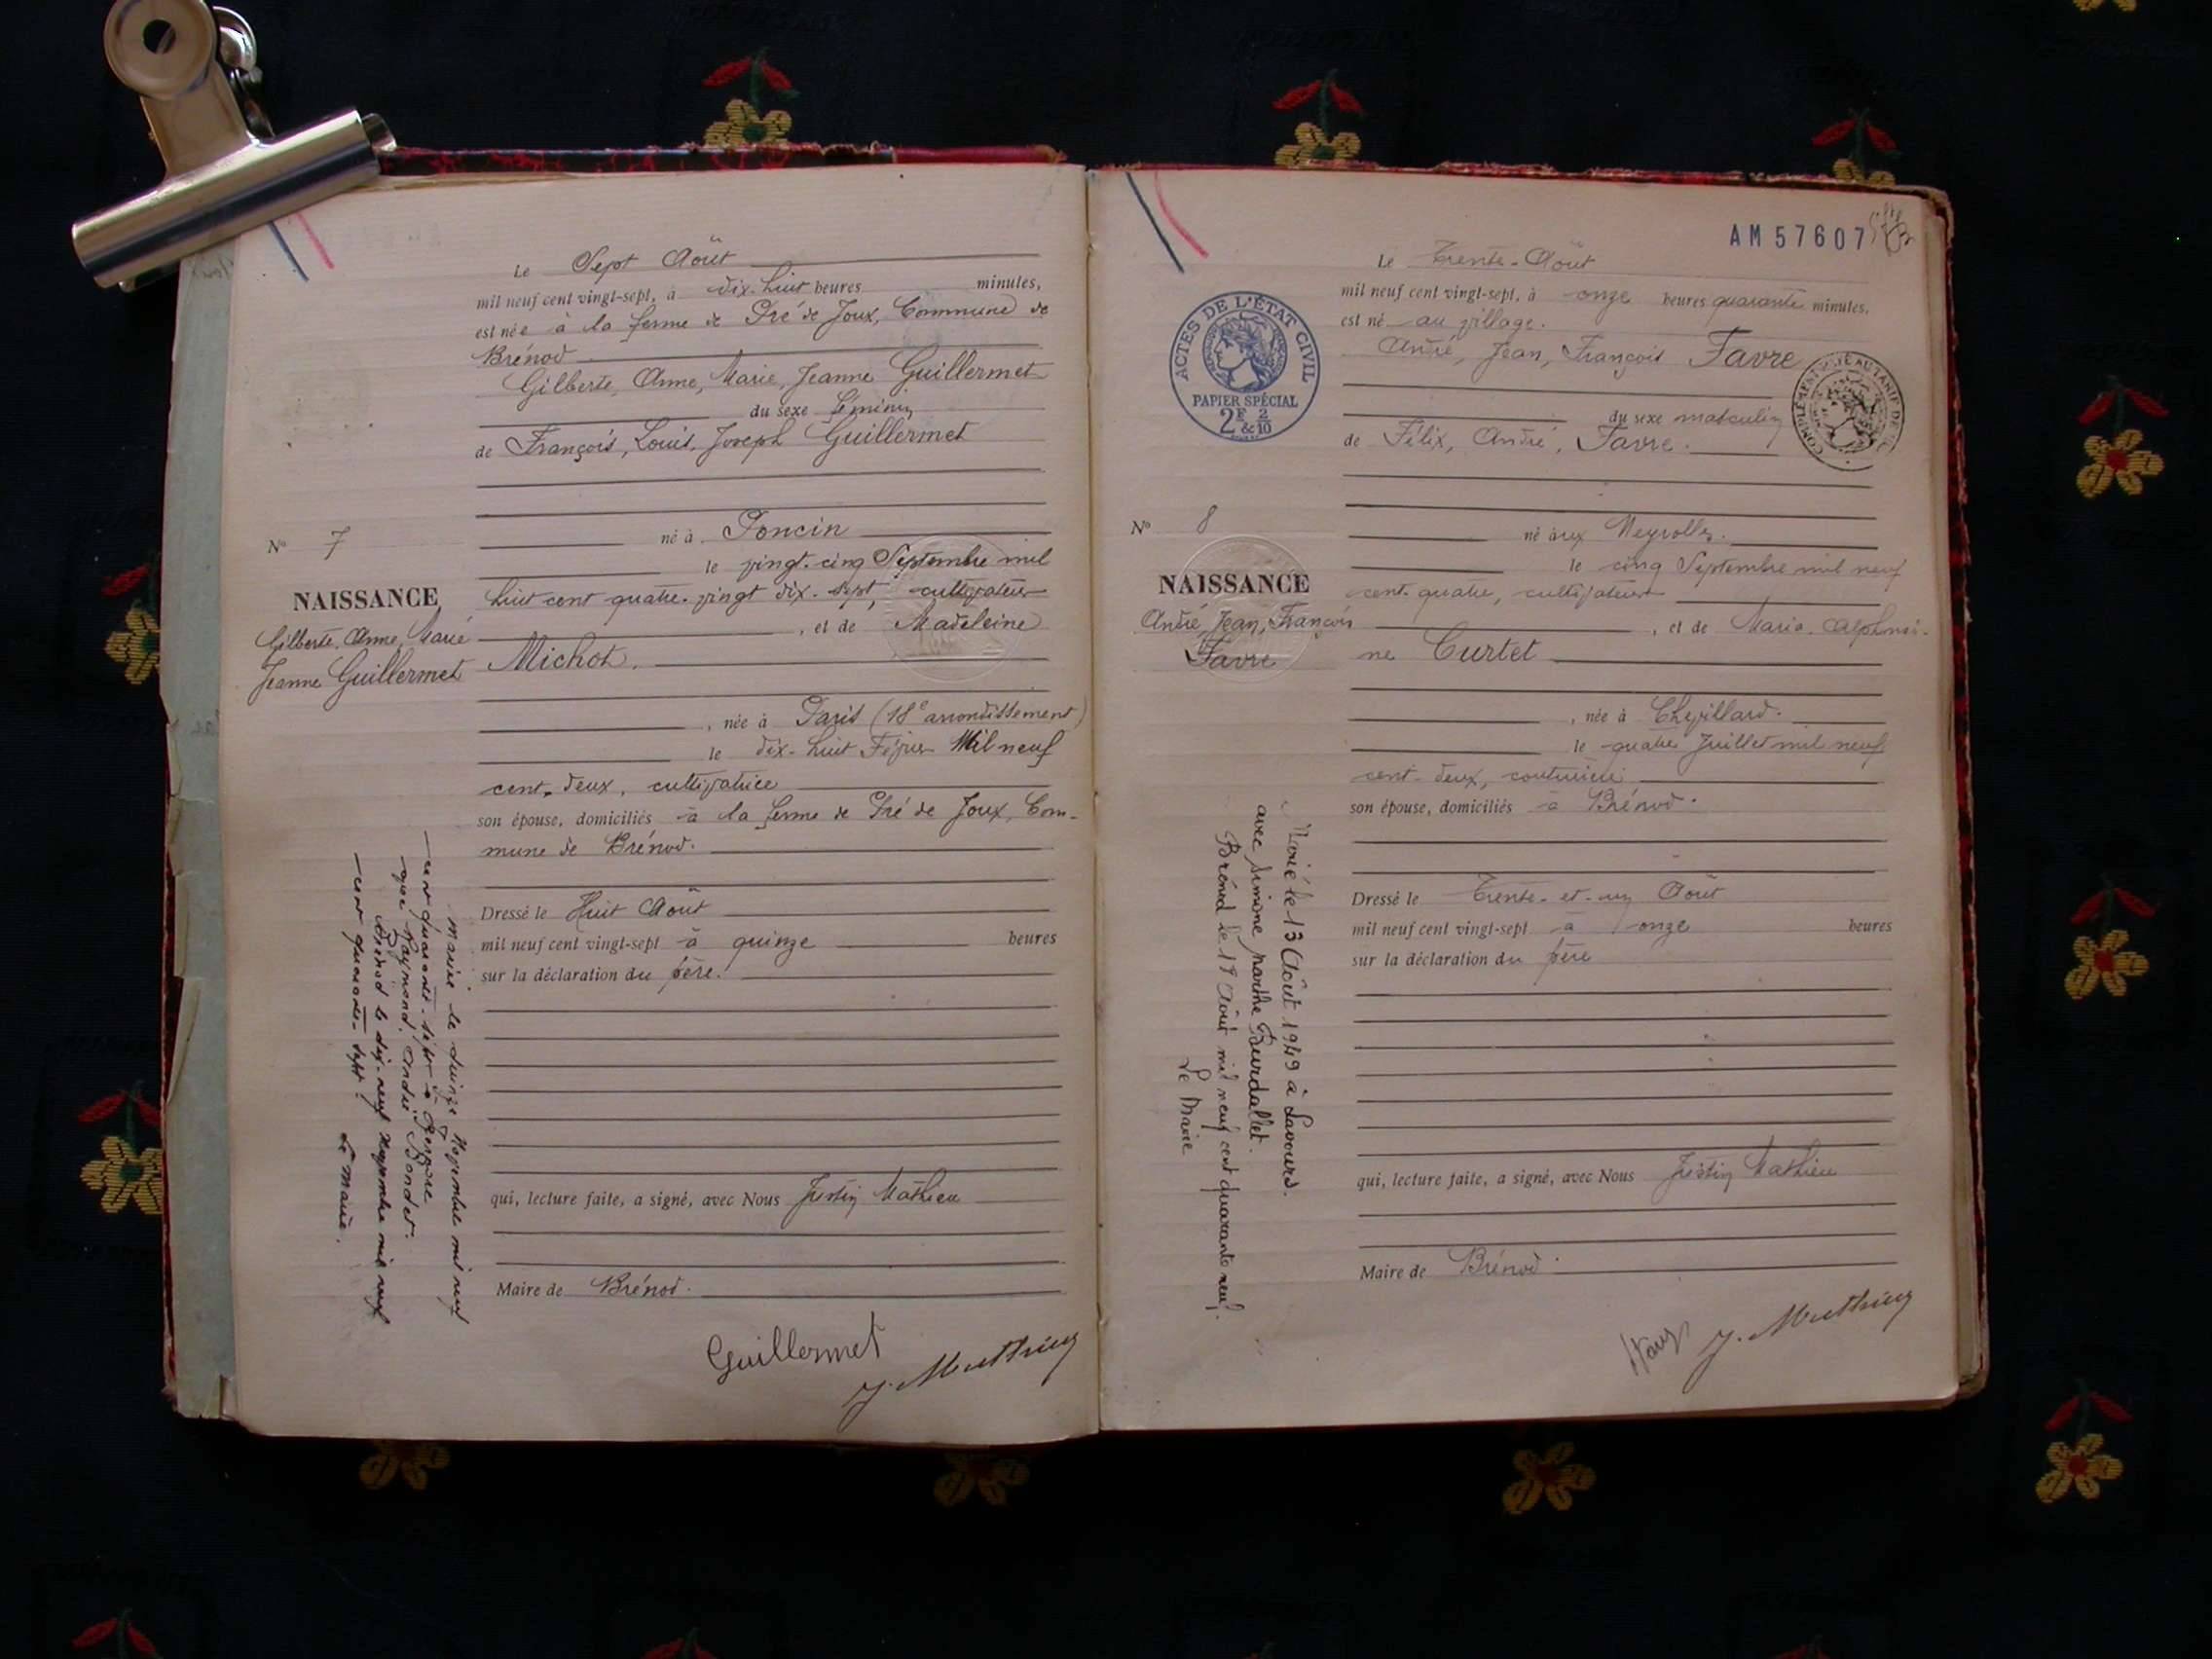 Le Sept Août
mil neuf cent vingt-sept, à dix-huit heures minutes,
est née à la ferme de Pré de Joux, Commune de
Brénod
Gilberte, Anne, Marie, Jeanne Guillermet
du sexe féminin
de François, Louis, Joseph Guillermet
né à Poncin
le vingt-cinq Septembre mil
huit cent quatre-vingt dix-sept, cultivateur
, et de Madeleine
Michot.
, née à Paris (18e arrondissement)
le dix-huit Février Mil neuf
cent-deux, cultivatrice
son épouse, domiciliés à la ferme de Pré de Joux, Com-
mune de Brénod.
Dressé le Huit Août
mil neuf cent vingt-sept à quinze heures
sur la déclaration du père.
qui, lecture faite, a signé, avec Nous Justin Mathieu
Maire de Brénod.
Guillermet
J. Matthieu
No 7
NAISSANCE
Gilberte, Anne, Marie
Jeanne Guillermet
Mariée le quinze Novembre mil neuf
cent quarante-sept à
Raymond, André Bondet.
Brénod le dix-neuf Novembre mil neuf
cent quarante-sept.
Le Maire.
AM 57607
Le Trente-Août
mil neuf cent vingt-sept, à onze heures quarante minutes,
est né au village.
André, Jean, François Favre
du sexe masculin
de Félix, André, Favre.
né aux Neyrolles.
le cinq Septembre mil neuf
cent-quatre, cultivateur
, et de Maria, Alphonsi-
ne Curtet
, née à Chevillard.
le quatre Juillet mil neuf
cent-deux, couturière
son épouse, domiciliés à Brénod.
Dressé le Trente-et-un Août
mil neuf cent vingt-sept à onze heures
sur la déclaration du père
qui, lecture faite, a signé, avec Nous Justin Mathieu
Maire de Brénod.
J. Matthieu
ACTES DE L'ÉTAT CIVIL
PAPIER SPÉCIAL
2F & 2/10
No 8
NAISSANCE
André, Jean, François
Favre
Marié le 13 Août 1949 à Lavours.
avec Simone Marthe Burdallet.
Brénod le 17 Août mil neuf cent quarante neuf.
Le Maire